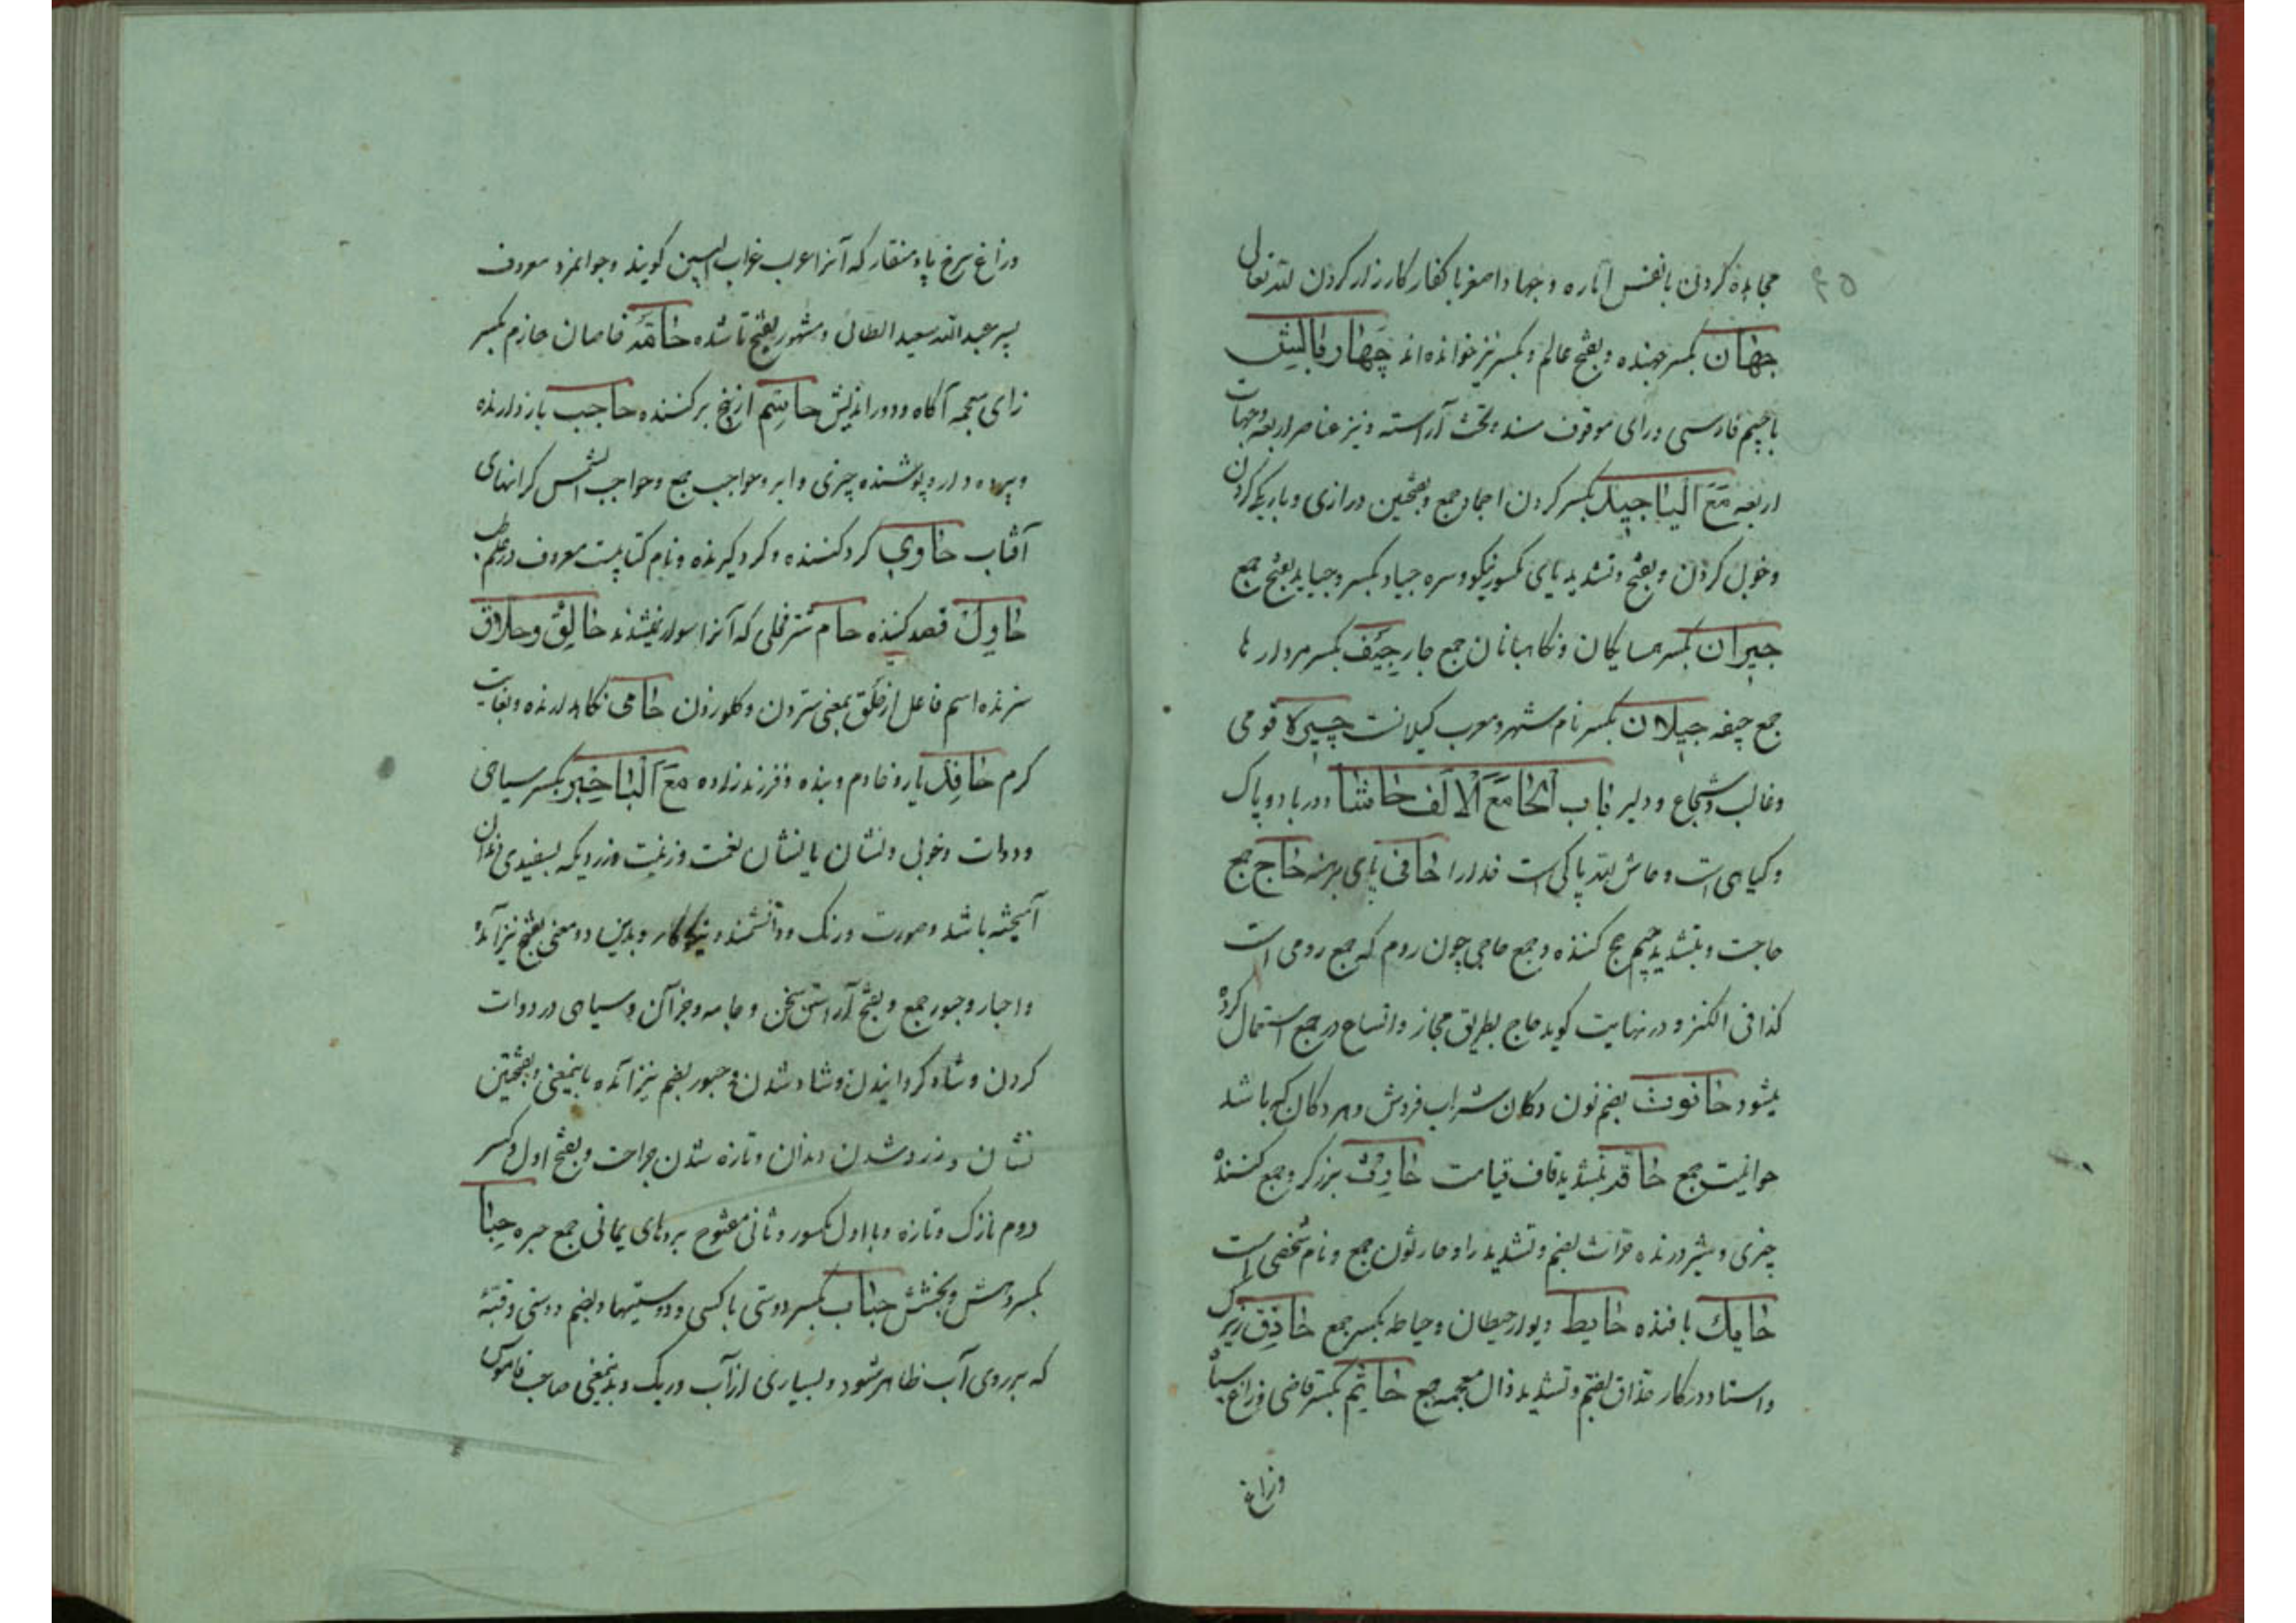 مجاهده کردن با نفس اماره و جهاد اصغر با کفار کارزار کردن لله تعالی
جهان بکسر جهنده و بفتح عالم و بکسر نیز خوانده‌اند چهار بالش
با جیم فارسی و رای موقوف مسند و تخت آراسته و نیز عناصر اربعه و جهات
اربعه مع الیا جید بکسر گردن اجیاد جمع و بفتحین درازی و باریکی گردن
و خوب گردن و بفتح و تشدید یای مکسور نیکو و سره جیاد بکسر و جیاید بفتح جمع
جیران بکسر همسایگان و نکاهبانان جمع جار جیف بکسر مردارها
جمع جیفه جیلان بکسر نام شهر و معرب کیلانست چیره قومی
و غالب و شجاع و دلیر باب الحا مع الالف حاشا دور باد و پاک
و کیاهی است و حاش لله پاکی است خدا را حافی پای برهنه حاج جمع
حاجت و بتشدید جیم حج کننده و جمع حاجی چون روم که جمع رومی است
کذا فی الکنز و در نهایت کوید حاج بطریق مجاز و اتساع در جمع استعمال کرده
میشود حانوت بضم نون دکان شراب فروش و هر دکان که باشد
حوانیت جمع حاقه بتشدید قاف قیامت حارث برزکر و جمع کننده
چیزی و شیر درنده حراث بضم و تشدید را و حارثون جمع و نام شخصی است
حایک بافنده حایط دیوار حیطان و حیاطه بکسر جمع حاذق زیرک
و استاد در کار حذاق بضم و تشدید ذال معجمه جمع حاتم بکسر قاضی و زاغ سیاه
وزاغ
و زاغ سرخ پا و منقار که آنرا عرب غراب البین کویند و جوانمرد معروف
پسر عبدالله سعید الطائی و مشهور بفتح تا شده حاقه خاصان حازم بکسر
زای معجمه آکاه و دور اندیش حاسم از بیخ برکننده حاجب باز دارنده
و پرده دار و پوشنده چیزی و ابرو حواجب جمع و حواجب الشمس کرانهای
آفتاب حاوی کرد کننده و کرد کیرنده و نام کتابیست معروف در علم طب
حاول قصد کننده حام شتر فحلی که آنرا سوار نمیشدند حالق و حلاق
سترنده اسم فاعل از حلق بمعنی ستردن و کلو زدن حامی نکاهدارنده و بغایت
کرم حافد یار و خادم و بنده و فرزند زاده مع البا حبر بکسر سیاهی
و دوات و خوبی و نشان یا نشان نعمت و زینت و زردیکه بسفیدی دندان
آمیخته باشد و صورت و رنک و دانشمند و نیکوکار و بدین دو معنی بفتح نیز آمده
و احبار و حبور جمع و بفتح آراستن سخن و جامه و جز آن و سیاهی در دوات
کردن و شاد کردانیدن و شاد شدن و حبور بضم نیز آمده باینمعنی و بفتحتین
نشان و زرد شدن دندان و تازه شدن جراحت و بفتح اول و کسر
دوم نازک و تازه و با اول مکسور و ثانی مفتوح بردهای یمانی جمع حبره حبا
بکسر دهش و بخشش حباب بکسر دوستی با کسی و دوستیها و بضم دوستی و قبه
که بر روی آب ظاهر شود و بسیاری از آب و ریک و بدینمعنی صاحب قاموس